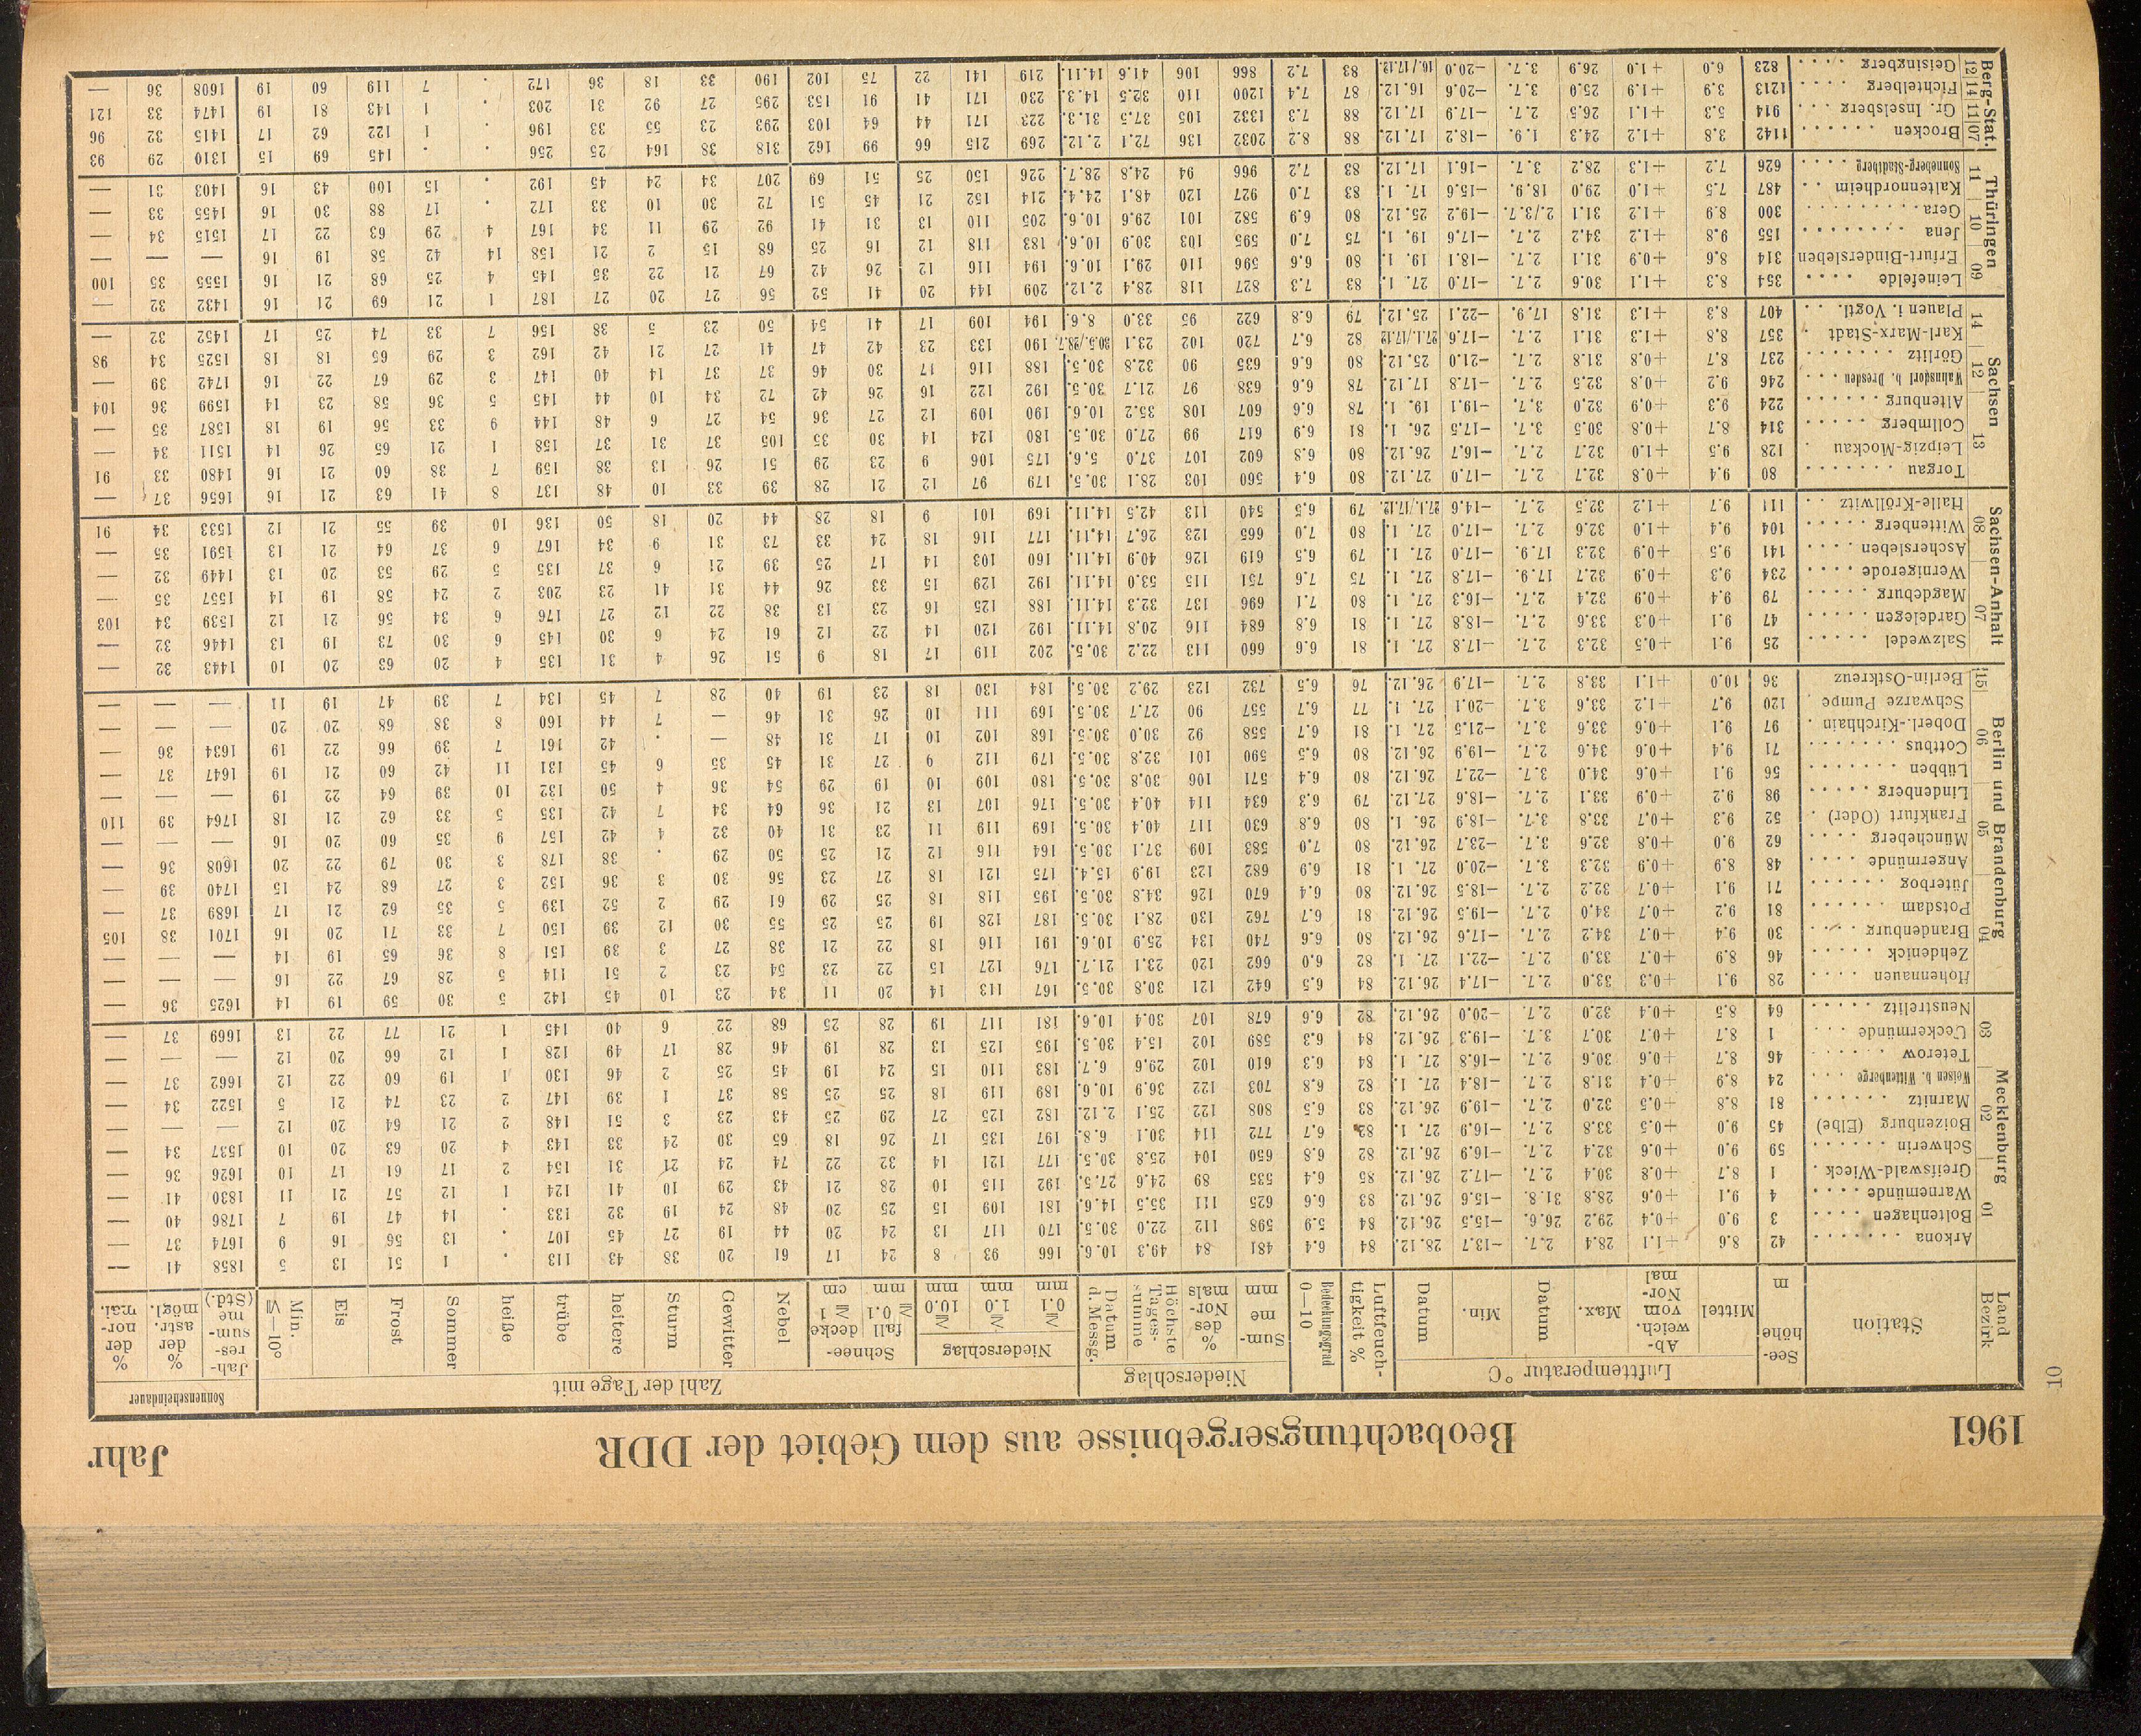 10
1961 Beobachtungsergebnisse aus dem Gebiet der DDR Jahr
Land Bezirk Station See-höhe m Lufttemperatur °C Mittel Ab-weich. vom Nor-mal Max. Datum Min. Datum Luftfeuch-tigkeit % Bedeckungsgrad 0—10 Niederschlag Sum-me mm % des Nor-mals Höchste Tages-summe Datum d. Messg. Zahl der Tage mit Niederschlag ≧ 0.1 mm ≧ 1.0 mm ≧ 10.0 mm Schnee-fall ≧ 0.1 mm decke ≧ 1 cm Nebel Gewitter Sturm heitere trübe heiße Sommer Frost Eis Min. ≧ —10° Sonnenscheindauer Jah-res-sum-me (Std.) % der astr. mögl. % der nor-mal.
Mecklenburg
01
Arkona 42 8.6 +1.1 28.4 2.7. —13.7 28.12. 84 6.4 481 84 49.3 10.6. 166 93 8 24 17 61 20 38 43 113 . 1 51 13 5 1858 41 —
Boltenhagen 3 9.0 +0.4 29.2 26.6. —15.5 26.12. 84 5.9 598 112 22.0 30.5. 170 117 13 24 20 44 19 27 45 107 . 13 56 16 9 1674 37 —
Warnemünde 4 9.1 +0.6 28.8 31.8. —15.6 26.12. 83 6.6 625 111 35.5 14.6. 181 109 15 25 20 48 24 19 32 133 . 14 47 19 7 1786 40 —
Greifswald-Wieck 1 8.7 +0.8 30.4 2.7. —17.2 26.12. 85 6.4 535 89 24.6 27.5. 192 115 10 28 21 43 29 10 41 124 1 12 57 21 11 1830 41 —
02
Schwerin 59 9.0 +0.6 32.4 2.7. —16.9 26.12. 82 6.8 650 104 25.8 30.5. 177 121 14 32 22 74 24 21 31 154 2 17 61 17 10 1626 36 —
Boizenburg (Elbe) 45 9.0 +0.5 33.8 2.7. —16.9 27. 1. 83 6.7 772 114 30.1 6.8. 197 135 17 26 18 65 30 24 33 143 4 20 63 20 10 1537 34 —
Marnitz 81 8.8 +0.5 32.0 2.7. —19.9 26.12. 83 6.5 808 122 25.1 2.12. 182 125 27 29 25 43 23 3 51 148 2 21 64 20 12 — — —
Weisen b. Wittenberge 24 8.9 +0.4 31.8 2.7. —18.4 27. 1. 82 6.8 703 122 36.9 10.6. 189 119 18 25 25 58 37 1 39 147 2 23 74 21 5 1522 34 —
03
Teterow 46 8.7 +0.6 30.6 2.7. —16.8 27. 1. 84 6.3 610 102 29.6 6.7. 183 110 15 24 19 45 25 2 46 130 1 19 60 22 12 1662 37 —
Ueckermünde 1 8.7 +0.7 30.7 3.7. —19.3 26.12. 84 6.3 589 102 15.4 30.5. 195 125 13 28 19 46 28 17 49 128 1 12 66 20 12 — — —
Neustrelitz 64 8.5 +0.4 32.0 2.7. —20.0 26.12. 82 6.6 678 107 30.4 10.6. 181 117 19 28 25 68 22 6 40 145 1 21 77 22 13 1669 37 —
Berlin und Brandenburg
04
Hohennauen 28 9.1 +0.3 33.0 2.7. —17.4 26.12. 84 6.5 642 121 30.8 30.5. 167 113 14 20 11 34 23 10 45 142 5 30 59 19 14 1625 36 —
Zehdenick 46 8.9 +0.7 33.0 2.7. —22.1 27. 1. 82 6.0 662 120 23.1 21.7. 176 127 15 22 23 54 23 2 51 114 5 28 67 22 16 — — —
Brandenburg 30 9.4 +0.7 34.2 2.7. —17.6 26.12. 80 6.6 740 134 25.9 10.6. 191 116 18 22 21 38 27 3 39 151 8 36 65 19 14 — — —
Potsdam 81 9.2 +0.7 34.0 2.7. —19.5 26.12. 81 6.7 762 130 28.1 30.5. 187 128 19 25 25 55 30 12 39 150 7 33 71 20 16 1701 38 105
Jüterbog 71 9.1 +0.7 32.2 2.7. —18.5 26.12. 80 6.4 670 126 34.8 30.5. 195 118 18 25 29 61 29 2 52 139 5 35 62 21 17 1689 37 —
05
Angermünde 48 8.9 +0.9 32.3 3.7. —20.0 27. 1. 81 6.9 682 123 19.9 15.4. 175 121 18 27 23 56 30 3 36 152 3 27 68 24 15 1740 39 —
Müncheberg 62 9.0 +0.8 32.6 3.7. —23.7 26.12. 80 7.0 583 109 37.1 30.5. 164 116 12 21 25 50 29 . 38 178 3 30 79 22 20 1608 36 —
Frankfurt (Oder) 52 9.3 +0.7 33.8 3.7. —18.9 26. 1. 80 6.8 630 117 40.4 30.5. 169 119 11 23 31 40 32 4 42 157 9 35 60 20 16 — — —
Lindenberg 98 9.2 +0.9 33.1 2.7. —18.6 27.12. 79 6.3 634 114 40.4 30.5. 176 107 13 21 36 64 34 7 42 135 5 33 62 21 18 1764 39 110
06
Lübben 56 9.1 +0.6 34.0 3.7. —22.7 26.12. 80 6.4 571 106 30.8 30.5. 180 109 10 19 29 54 36 4 50 132 10 39 64 22 19 — — —
Cottbus 71 9.4 +0.6 34.6 2.7. —19.9 26.12. 80 6.5 590 101 32.8 30.5. 179 112 9 27 31 45 35 6 45 131 11 42 60 21 19 1647 37 —
Doberl.-Kirchhain 97 9.1 +0.6 33.6 3.7. —21.5 27. 1. 81 6.7 558 92 30.0 30.5. 168 102 10 17 31 48 — . 42 161 7 39 66 22 19 1634 36 —
Schwarze Pumpe 120 9.7 +1.2 33.6 3.7. —20.1 27. 1. 77 6.7 557 90 27.7 30.5. 169 111 10 26 31 46 — 7 44 160 8 38 68 20 20 — — —
15
Berlin-Ostkreuz 36 10.0 +1.1 33.8 2.7. —17.9 26.12. 76 6.5 732 123 29.2 30.5. 184 130 18 23 19 40 28 7 45 134 7 39 47 19 11 — — —
Sachsen-Anhalt
07
Salzwedel 25 9.1 +0.5 32.3 2.7. —17.8 27. 1. 81 6.6 660 113 22.2 30.5. 202 119 17 18 9 51 26 4 31 135 4 20 63 20 10 1443 32 —
Gardelegen 47 9.1 +0.3 33.6 2.7. —18.8 27. 1. 81 6.8 684 116 20.8 14.11. 192 120 14 22 12 61 24 6 30 145 6 30 73 19 13 1446 32 —
Magdeburg 79 9.4 +0.9 32.4 2.7. —16.3 27. 1. 80 7.1 696 137 32.3 14.11. 188 125 16 23 13 38 22 12 27 176 6 34 56 21 12 1539 34 103
Wernigerode 234 9.3 +0.9 32.7 17.9. —17.8 27. 1. 75 7.6 751 115 53.0 14.11. 192 129 15 33 26 44 31 41 23 203 2 24 58 19 14 1557 35 —
08
Aschersleben 141 9.5 +0.9 32.3 17.9. —17.0 27. 1. 79 6.5 619 126 40.9 14.11. 160 103 14 17 25 39 21 6 37 135 5 29 53 20 13 1449 32 —
Wittenberg 104 9.4 +1.0 32.6 2.7. —17.0 27. 1. 80 7.0 665 123 26.7 14.11. 177 116 18 24 33 73 31 9 34 167 6 37 64 21 13 1591 35 —
Halle-Kröllwitz 111 9.7 +1.2 32.5 2.7. —14.6 27.1./17.12. 79 6.5 540 113 42.5 14.11. 169 101 9 18 28 44 20 18 50 136 10 39 55 21 12 1533 34 91
Sachsen
13
Torgau 80 9.4 +0.8 32.7 2.7. —17.0 27.12. 80 6.4 560 103 28.1 30.5. 179 97 12 21 28 39 33 10 48 137 8 41 63 21 16 1656 37 —
Leipzig-Mockau 128 9.5 +1.0 32.7 2.7. —16.7 26.12. 80 6.8 602 107 37.0 5.6. 175 106 9 23 29 51 26 13 38 159 7 38 60 21 16 1480 33 91
Collmberg 314 8.7 +0.8 30.5 3.7. —17.5 26. 1. 81 6.9 617 99 27.0 30.5. 180 124 14 30 35 105 37 31 37 158 1 21 65 26 14 1511 34 —
Altenburg 224 9.3 +0.9 32.0 3.7. —19.1 19. 1. 78 6.6 607 108 35.2 10.6. 190 109 12 27 36 54 27 6 48 144 9 33 56 19 18 1587 35 —
12
Wahnsdorf b. Dresden 246 9.2 +0.8 32.5 2.7. —17.8 17.12. 78 6.6 638 97 21.7 30.5. 192 122 16 26 42 72 34 10 44 145 5 36 58 23 14 1599 36 104
Görlitz 237 8.7 +0.8 31.8 2.7. —21.0 25.12. 80 6.6 635 90 32.8 30.5. 188 116 17 30 46 37 37 14 40 147 3 29 67 22 16 1742 39 —
14
Karl-Marx-Stadt 357 8.8 +1.3 31.1 2.7. —17.6 27.1./17.12 82 6.7 720 102 23.1 30.5./28.7. 190 133 23 42 47 41 27 21 42 162 3 29 65 18 18 1525 34 98
Plauen i. Vogtl. 407 8.3 +1.3 31.8 17.9. —22.1 25.12. 79 6.8 622 95 33.0 8.6. 194 109 17 41 54 50 23 5 38 156 7 33 74 25 17 1452 32 —
Thüringen
09
Leinefelde 354 8.3 +1.1 30.6 2.7. —17.0 27. 1. 83 7.3 827 118 28.4 2.12. 209 144 20 41 52 56 27 20 27 187 1 21 69 21 16 1432 32 —
Erfurt-Bindersleben 314 8.6 +0.9 31.1 2.7. —18.1 19. 1. 80 6.6 596 110 29.1 10.6. 194 116 12 26 42 67 21 22 35 145 4 25 68 21 16 1555 35 100
10
Jena 155 9.8 +1.2 34.2 2.7. —17.6 19. 1. 75 7.0 595 103 30.9 10.6. 183 118 12 16 25 68 15 2 21 158 14 42 58 19 16 — — —
Gera 300 8.9 +1.2 31.1 2./3.7. —19.2 25.12. 80 6.9 582 101 29.6 10.6. 205 110 13 31 41 92 29 11 34 167 4 29 63 22 17 1515 34 —
11
Kaltennordheim 487 7.5 +1.0 29.0 18.9. —15.6 17. 1. 83 7.0 927 120 48.1 24.4. 214 152 21 45 51 72 30 10 33 172 . 17 88 30 16 1455 33 —
Sonneberg-Stadtberg 626 7.2 +1.3 28.2 3.7. —16.1 17.12. 83 7.2 966 94 24.8 28.7. 226 150 25 51 69 207 34 24 45 192 . 15 100 43 16 1403 31 —
Berg-Stat.
07 Brocken 1142 3.8 +1.2 24.3 1.9. —18.2 17.12. 88 8.2 2032 136 72.1 2.12. 269 215 66 99 162 318 38 164 25 256 . . 145 69 15 1310 29 93
11 Gr. Inselsberg 914 5.3 +1.1 26.5 2.7. —17.9 17.12. 88 7.3 1332 105 37.5 31.3. 223 171 44 64 103 293 23 55 33 196 . 1 122 62 17 1415 32 96
14 Fichtelberg 1213 3.9 +1.9 25.0 3.7. —20.6 16.12. 87 7.4 1200 110 32.5 14.3. 230 171 41 91 153 295 27 92 31 203 . 1 143 81 19 1474 33 121
12 Geisingberg 823 6.0 +1.0 26.9 3.7. —20.0 16./17.12. 83 7.2 866 106 41.6 14.11. 219 141 22 75 102 190 33 18 36 172 . 7 119 60 19 1608 36 —